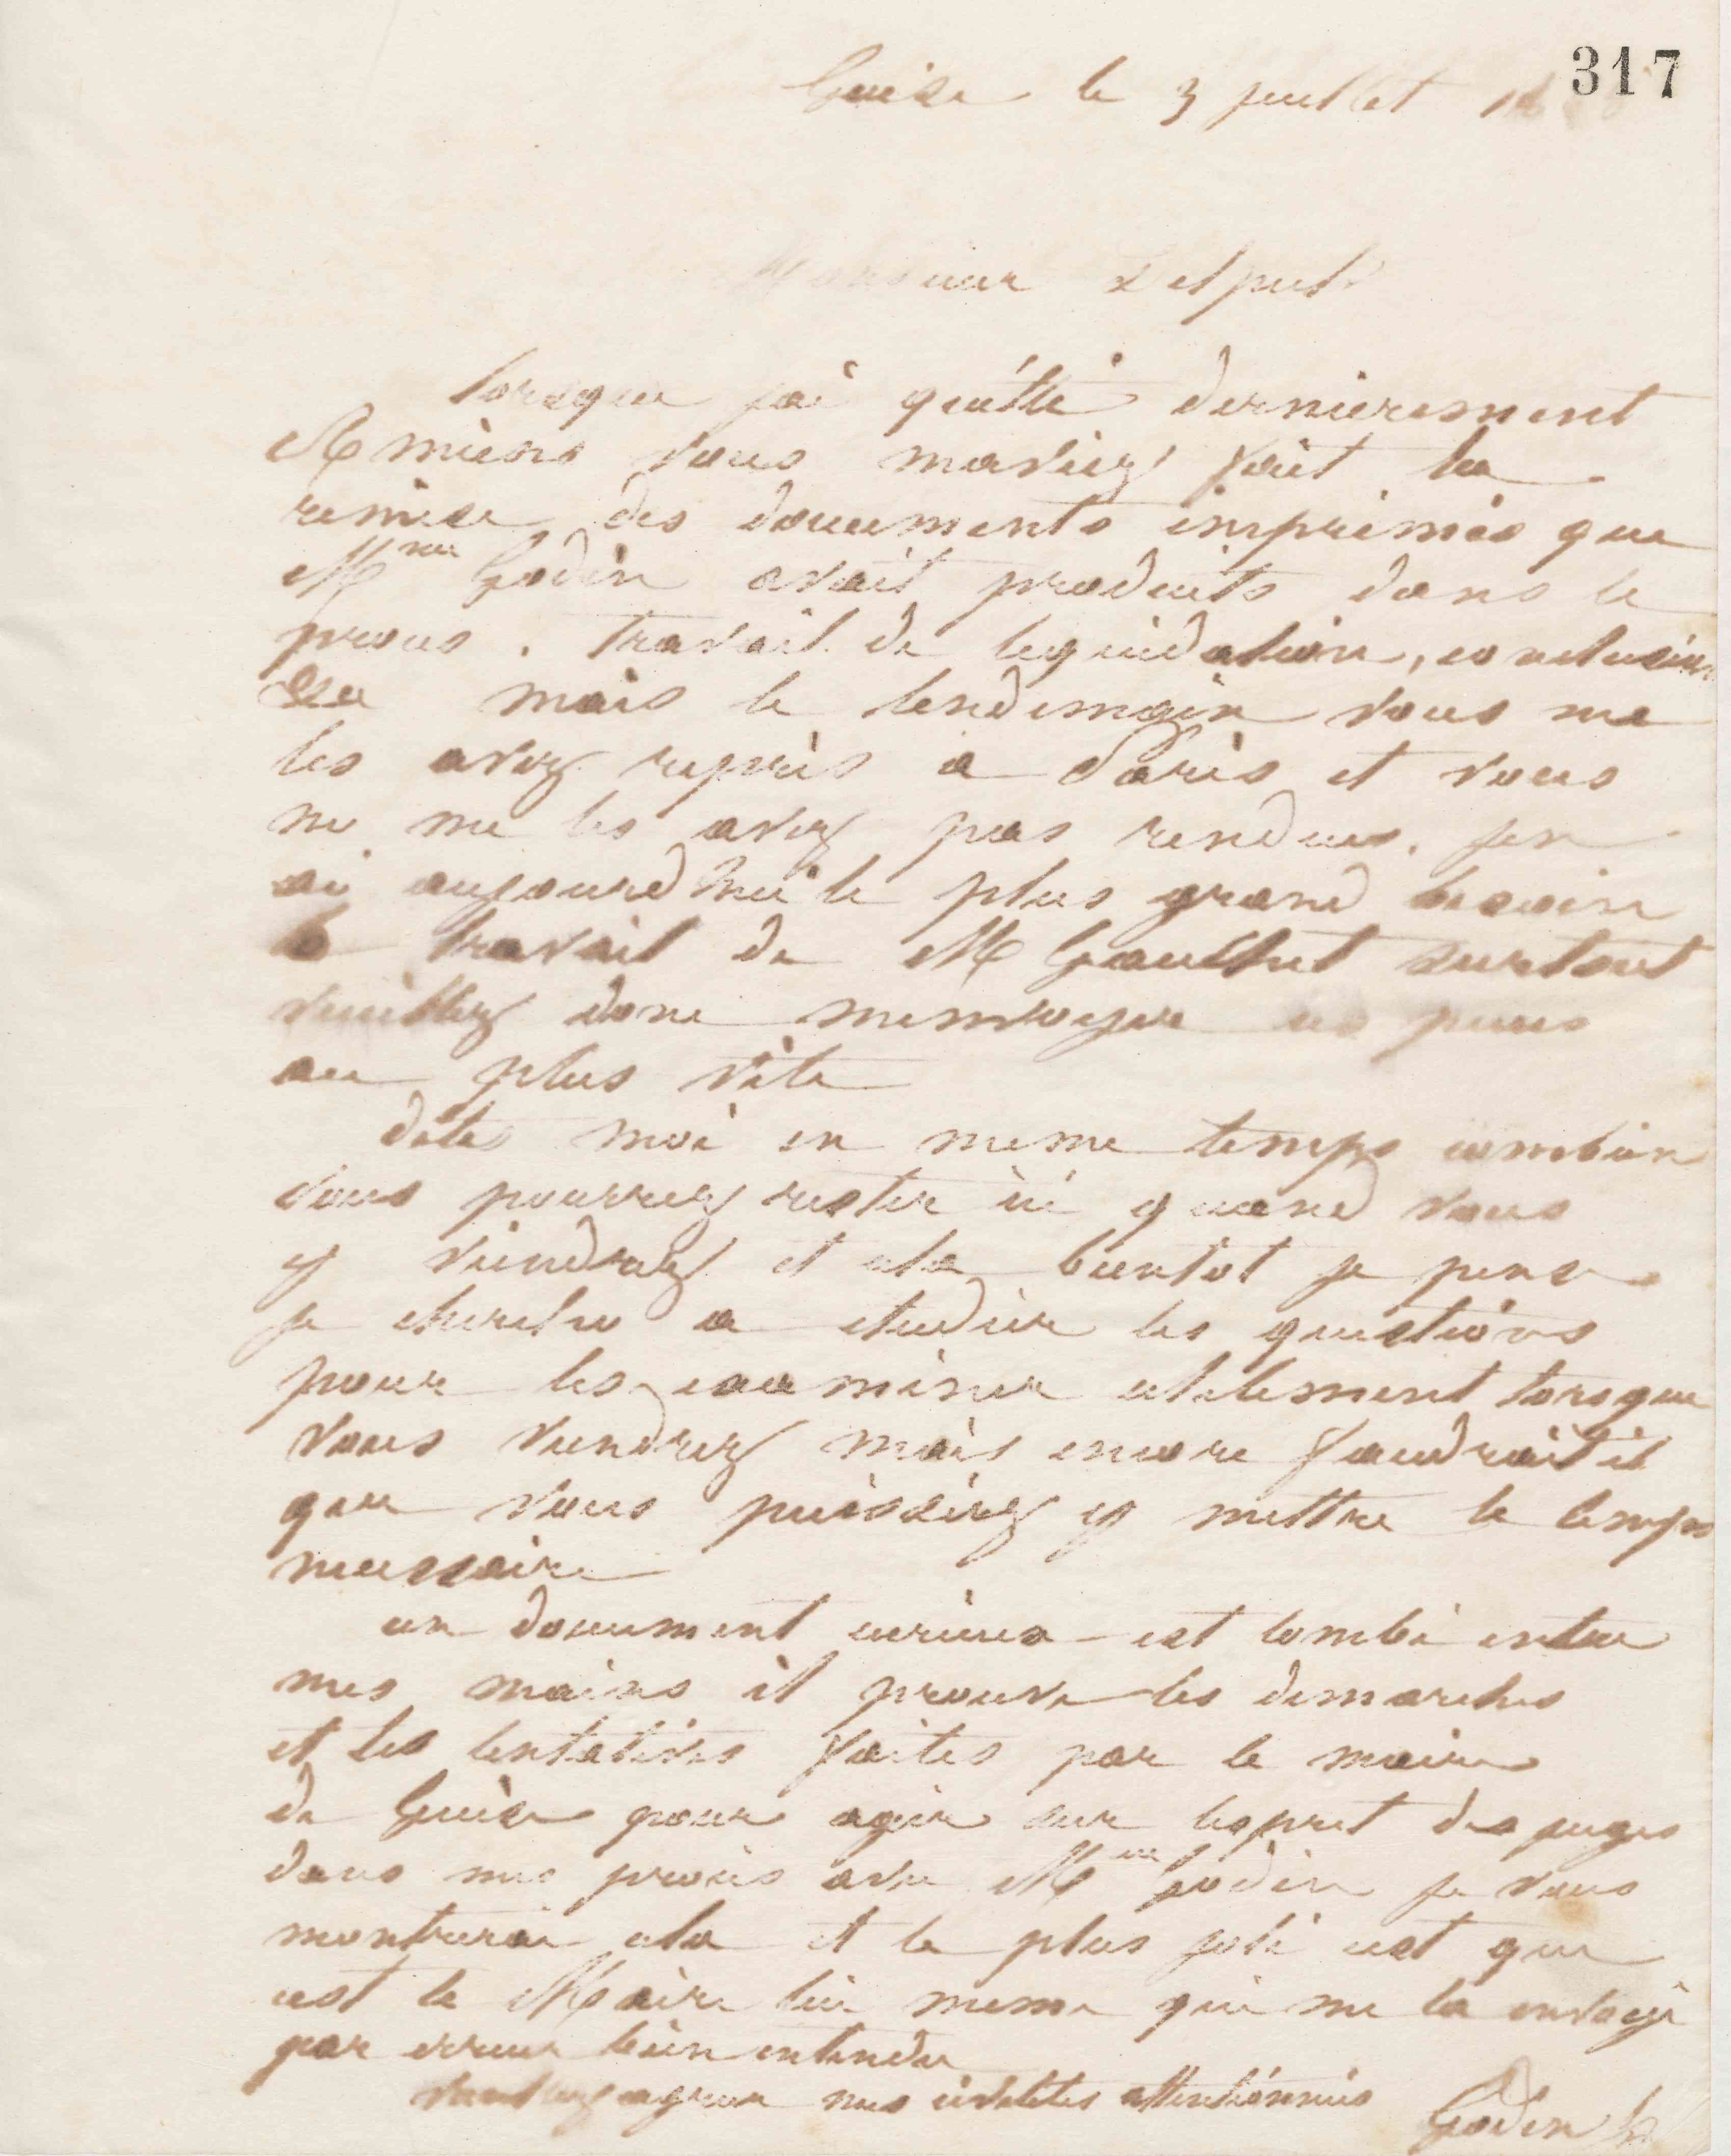 317
Guise le 3 juillet 18
Monsieur Delpech
lorsque jai quitté dernierement
Amiens vous maviez fait la
remise des documents imprimés que
Mme Godin avait produits dans le
proces . travail de liquidation, conclusion
&a mais le lendemain vous me
les avez repris a Paris et vous
ne me les avez pas rendus. jen
ai aujourdhui le plus grand besoin
le travail de M Gauchet surtout
veuillez donc menvoyer ces pieces
au plus vite
dites moi en meme temps combien
vous pourrez rester ici quand vous
y viendrez et cela bientot je pense
je cherche a etudier les questions
pour les examiner utilement lorsque
vous viendrez mais encore faudrait il
que vous puissiez y mettre le temps
necessaire
un document curieux est tombé entre
mes mains il prouve les demarches
et les tentatives faites par le maire
de Guise pour agir sur lesprit des juges
dans mes procès avec Mme Godin je vous
montrerai cela et le plus joli cest que
cest le Maire lui meme qui me la envoyé
par erreur bien entendu
veuillez agreer mes civilités attentionnées
Godin